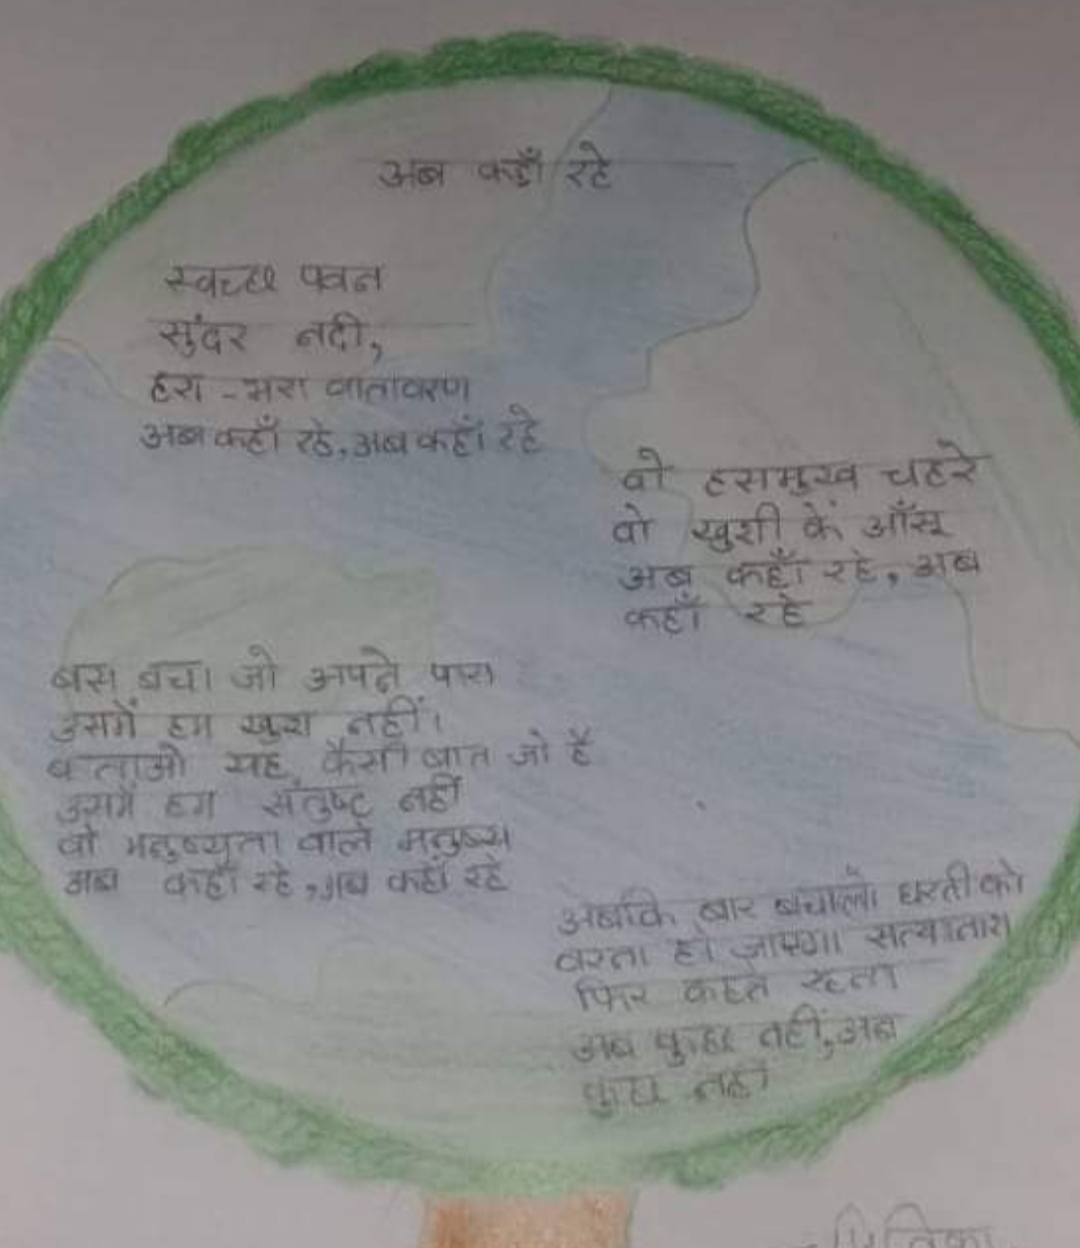 अब कहाँ रहे
स्वच्छ पवन
सुंदर नदी,
हरा-भरा वातावरण
अब कहाँ रहे, अब कहाँ रहे
वो हसमुख चहरे
वो खुशी के आँसू
अब कहाँ रहे, अब
कहाँ रहे
बस बचा जो अपने पास
उसमें हम खुश नहीं।
बताओ यह कैसी बात जो है
उसमें हम संतुष्ट नहीं
वो मनुष्यता वाले मनुष्य
अब कहाँ रहे, अब कहाँ रहे
अबकि बार बचालो धरती को
वरना हो जाएगा सत्यानाश
फिर कहते रहना
अब कुछ नहीं, अब
कुछ नहीं